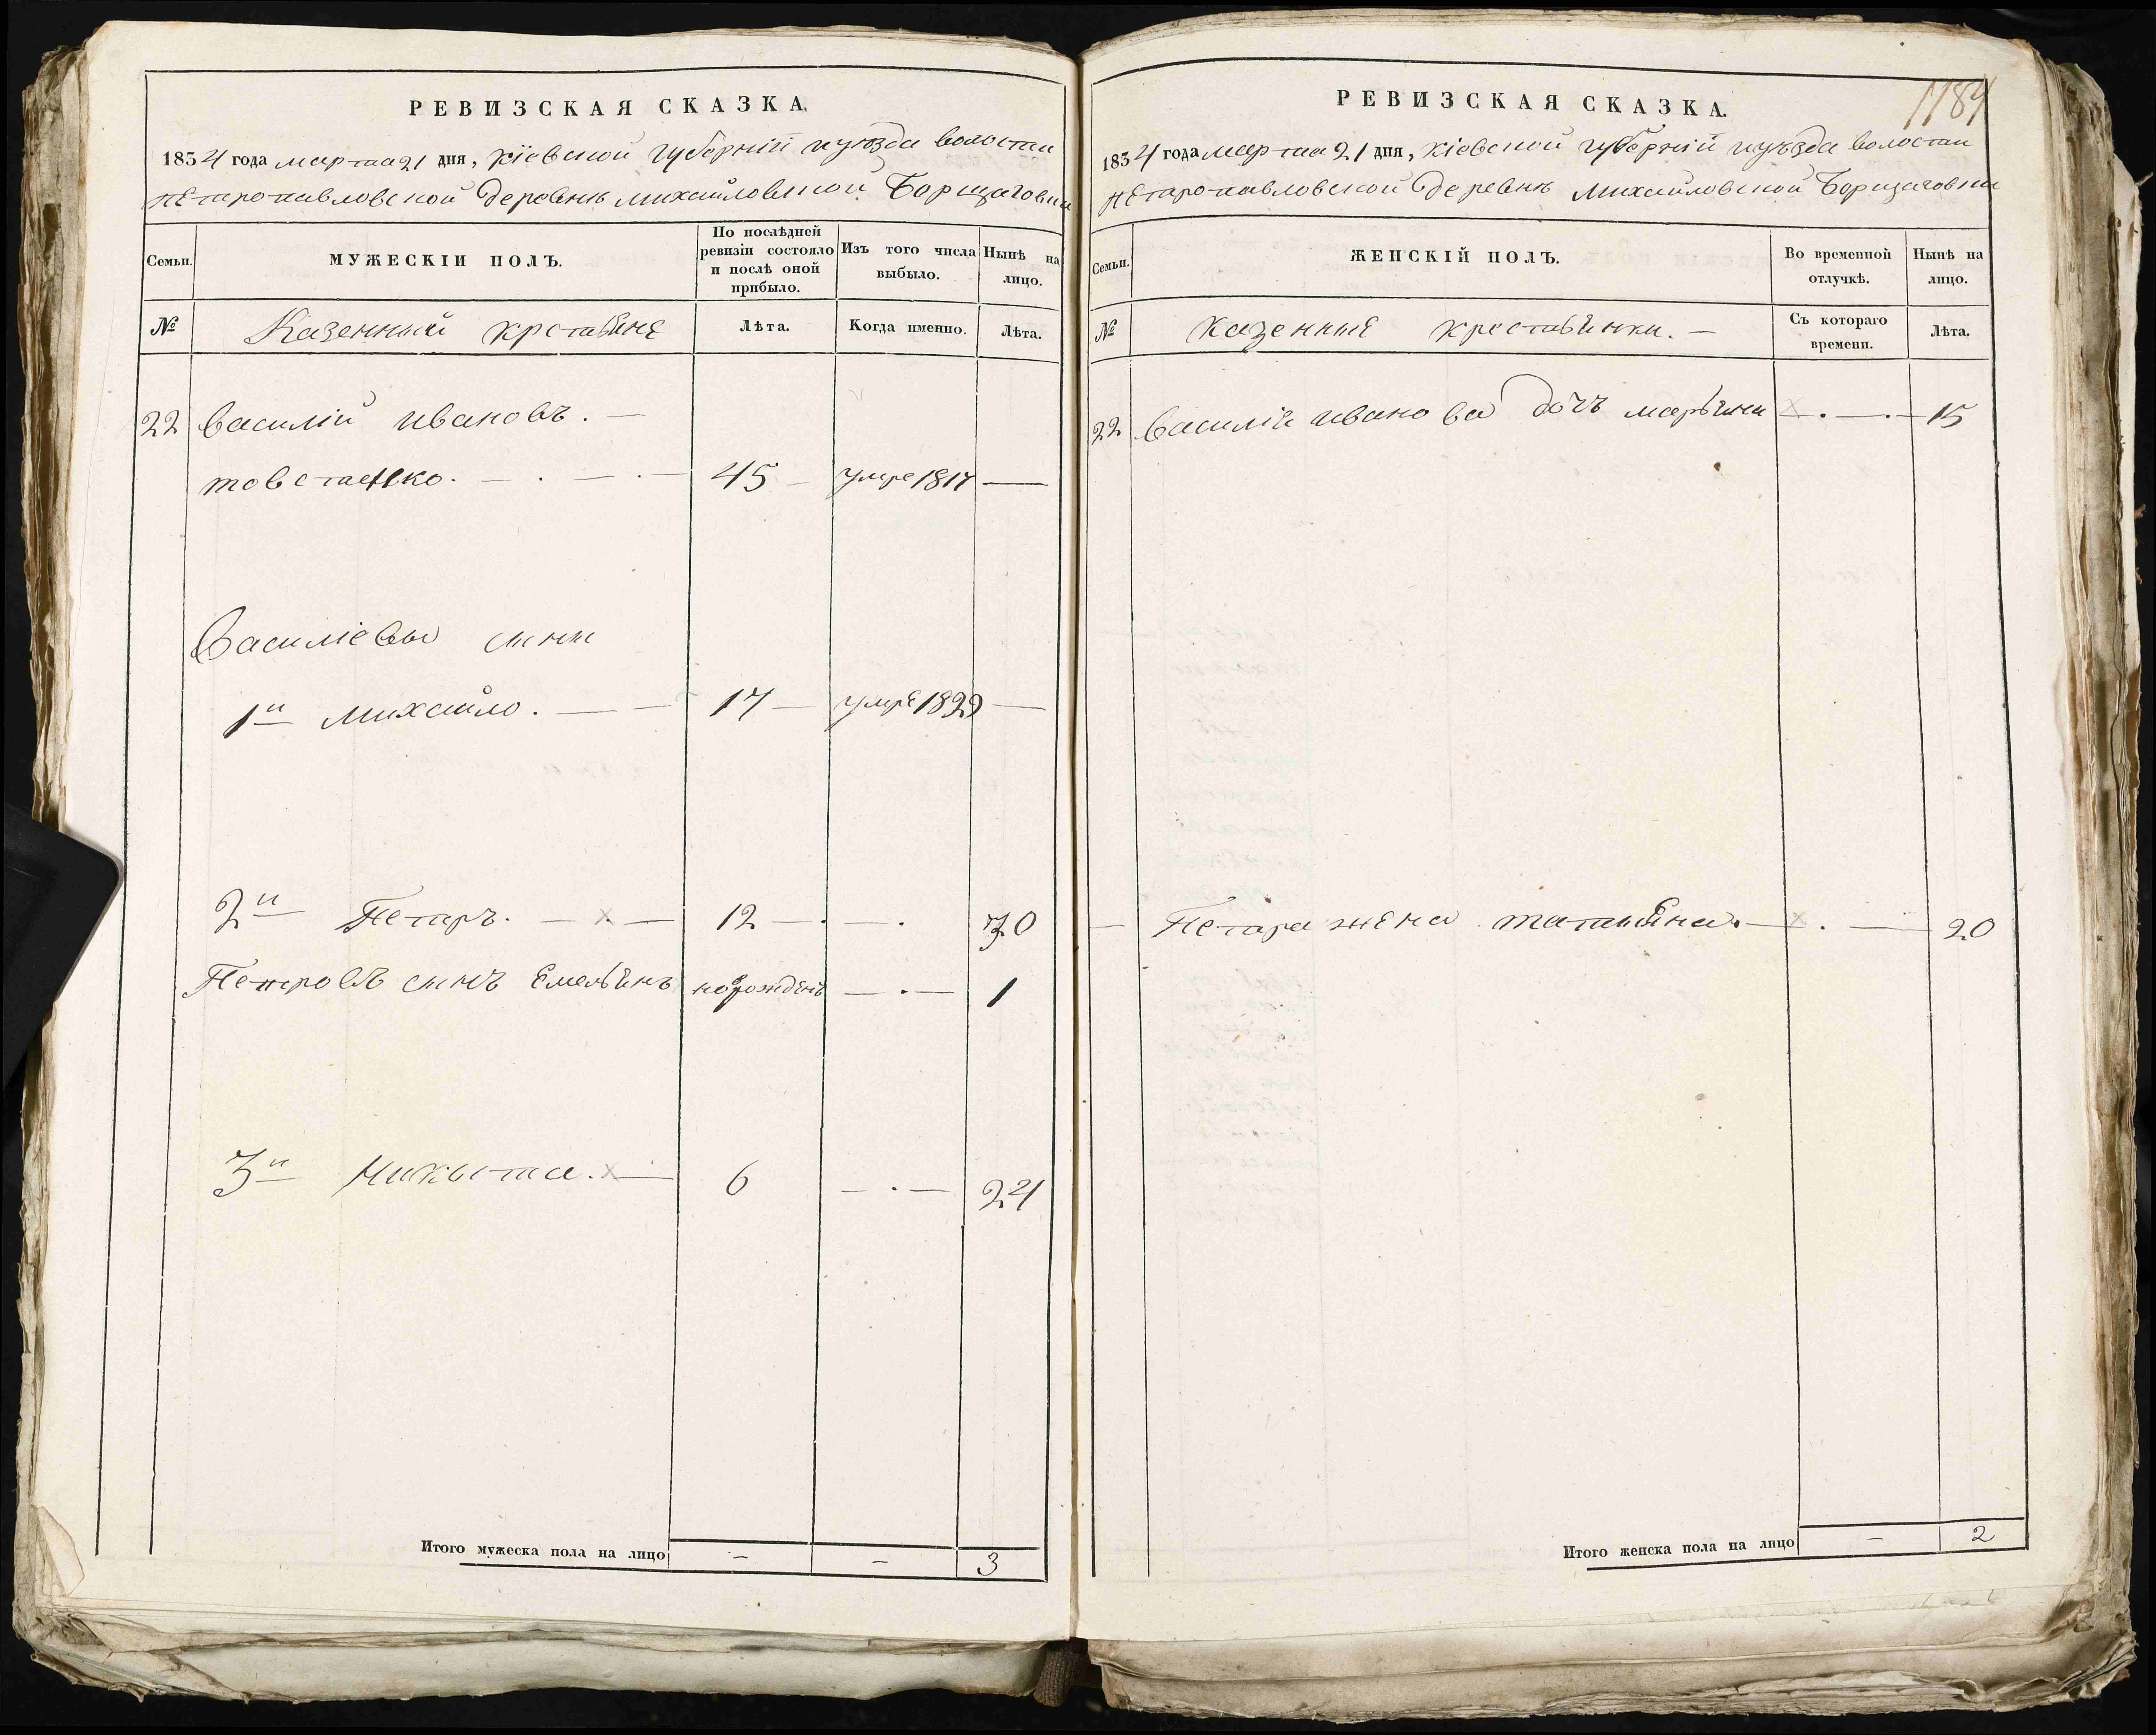 РЕВИЗСКАЯ СКАЗКА.
1834 года марта 21 дня, Кіевской губерніи иуѣзда волости
петропавловской деревнѣ михайловской Борщаговки
Семьи.
МУЖЕСКІЙ ПОЛЪ.
По послѣдней ревизіи состояло и послѣ оной прибыло.
Изъ того числа выбыло.
Нынѣ на лицо.
№
Казенный
Лѣта.
Когда именно.
Лѣта.
22 Василій ивановъ. —
товстенко. — . — . — 45 — умре 1817 —
Василіевы сини
1й Михайло. — — 17 — умре 1829 —
2й Петръ. — х — 12 — . — . 30
Петровъ синъ Емельянъ порожденъ — . — 1
3й Никита. х — 6 — . — 24
Итого мужеска пола на лицо — — 3
1184
РЕВИЗСКАЯ СКАЗКА.
1834 года марта 21 дня, Кіевской губерніи иуѣзда волости
петропавловской деревнѣ михайловской Борщаговки
Семьи.
ЖЕНСКІЙ ПОЛЪ.
Во временной отлучкѣ.
Нынѣ на лицо.
№
Казенные крестьянки. —
Съ котораго времени.
Лѣта.
22 Василія иванова дочъ марьяна х . — . — 15
— Петра жена татьяна. — х . — 20
Итого женска пола на лицо — 2